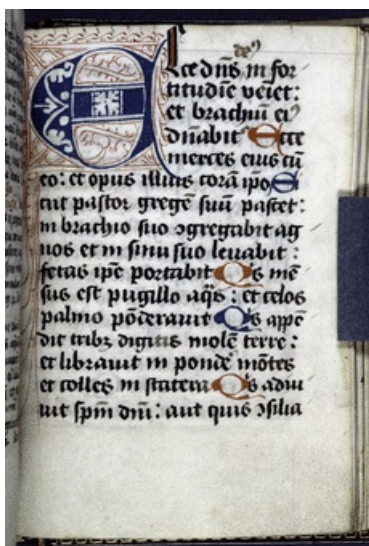 Ecce dn̄s in for
titudīe veīet:
et brachiū ei⁹
dn̄abit᷑ Ecce
merces eius cū
eo: et opus illius corā ip̄o S
icut pastor gregē suū pascet:
in brachio suo ꝯgregabit ag
nos et in sinu suo leuabit:
fetas ip̄e portabit Qͥs mē
sus est pugillo aq̄s: et celos
palmo pōderauit Qͥs appē
dit tribꝫ digitis molē terre:
et librauit in pōde᷑ mōtes
et colles in statera Qͥs adiu
uit sp̄m dn̄i: aut quis ꝯsilia